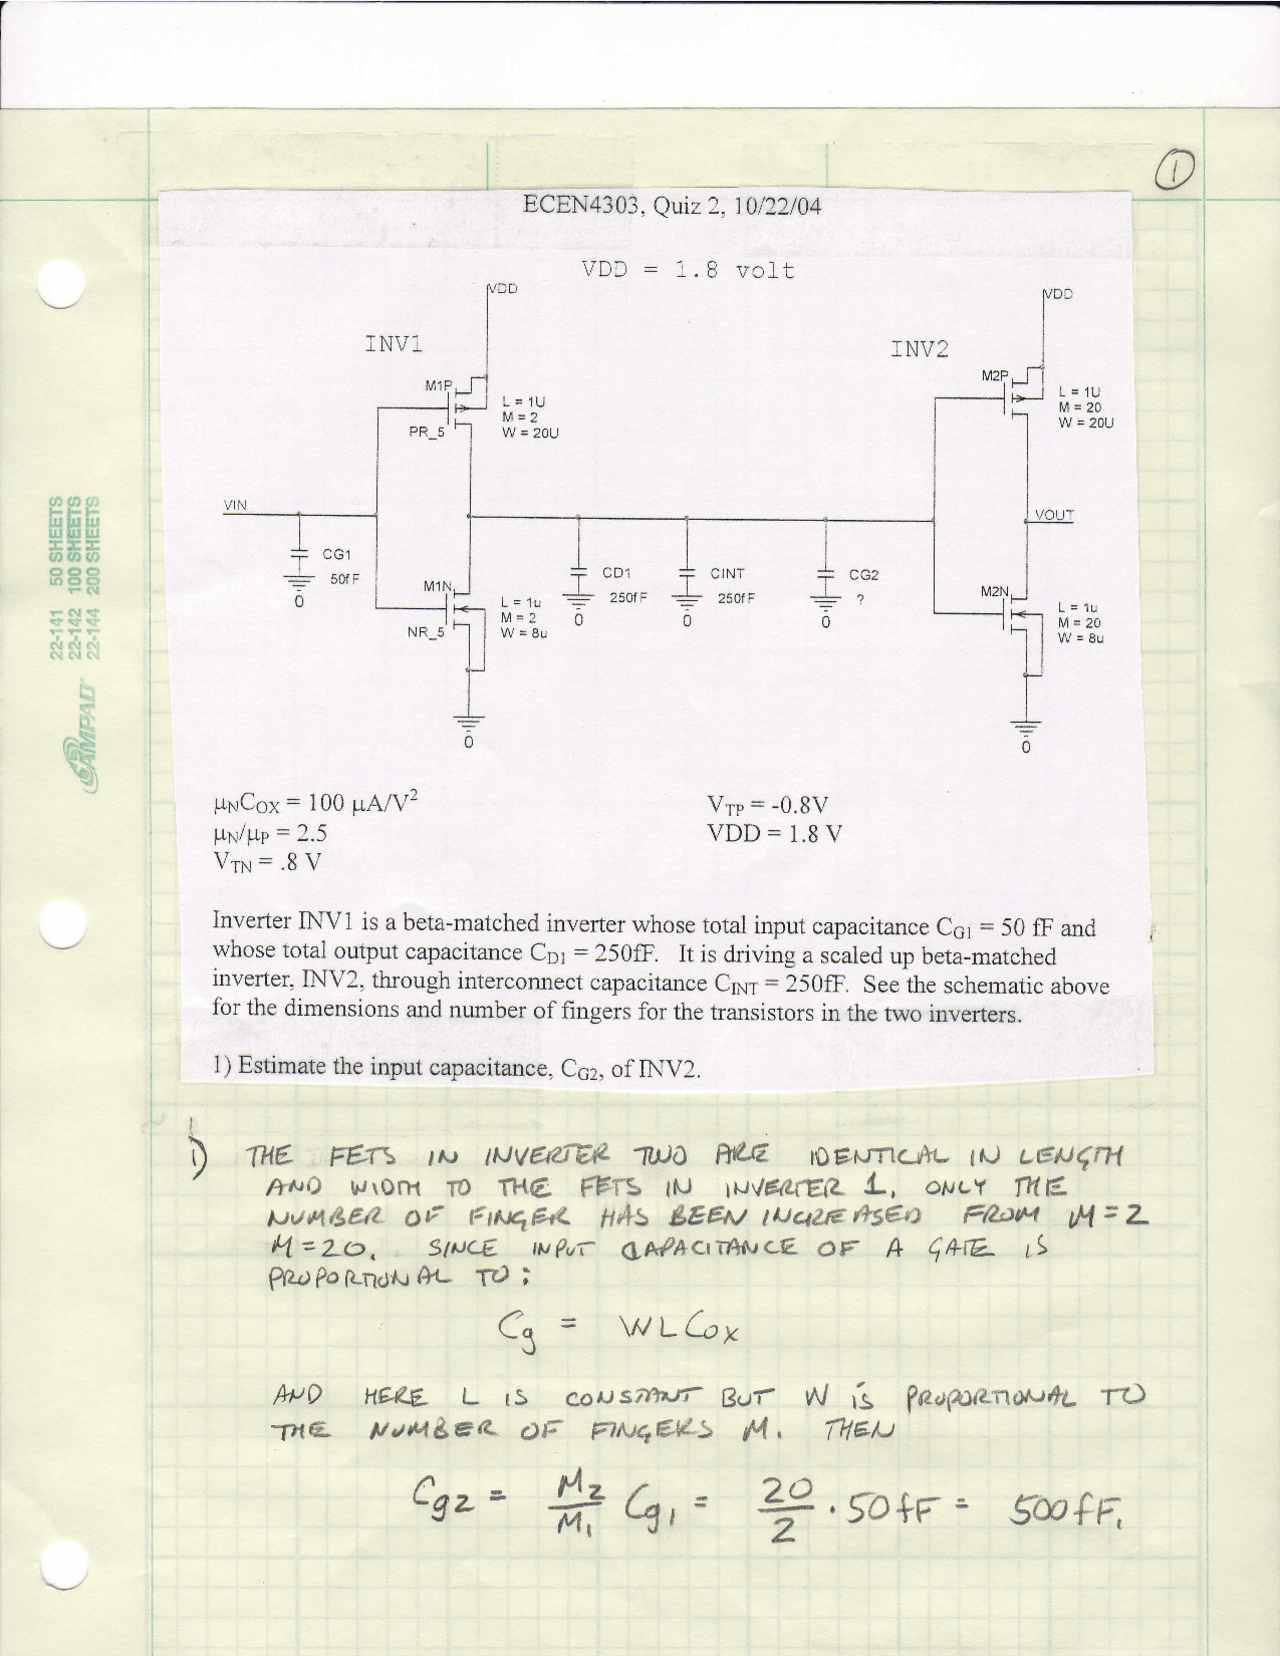 1
ECEN4303, Quiz 2, 10/22/04
VDD = 1.8 volt
VDD
VDD
INV1
INV2
M1P
L = 1U
M = 2
W = 20U
PR_5
M2P
L = 1U
M = 20
W = 20U
VIN
VOUT
CG1
50fF
0
M1N
L = 1u
M = 2
W = 8u
NR_5
0
CD1
250fF
0
CINT
250fF
0
CG2
?
0
M2N
L = 1u
M = 20
W = 8u
0
22-141 50 SHEETS
22-142 100 SHEETS
22-144 200 SHEETS
AMPAD
µNCOX = 100 µA/V²
µN/µP = 2.5
VTN = .8 V
VTP = -0.8V
VDD = 1.8 V
Inverter INV1 is a beta-matched inverter whose total input capacitance CG1 = 50 fF and
whose total output capacitance CD1 = 250fF. It is driving a scaled up beta-matched
inverter, INV2, through interconnect capacitance CINT = 250fF. See the schematic above
for the dimensions and number of fingers for the transistors in the two inverters.
1) Estimate the input capacitance, CG2, of INV2.
1) THE FETS IN INVERTER TWO ARE IDENTICAL IN LENGTH
AND WIDTH TO THE FETS IN INVERTER 1, ONLY THE
NUMBER OF FINGER HAS BEEN INCREASED FROM M=2
M=20. SINCE INPUT CAPACITANCE OF A GATE IS
PROPORTIONAL TO:
Cg = WLCox
AND HERE L IS CONSTANT BUT W IS PROPORTIONAL TO
THE NUMBER OF FINGERS M. THEN
Cg2 = M2/M1 Cg1 = 20/2 · 50fF = 500fF.